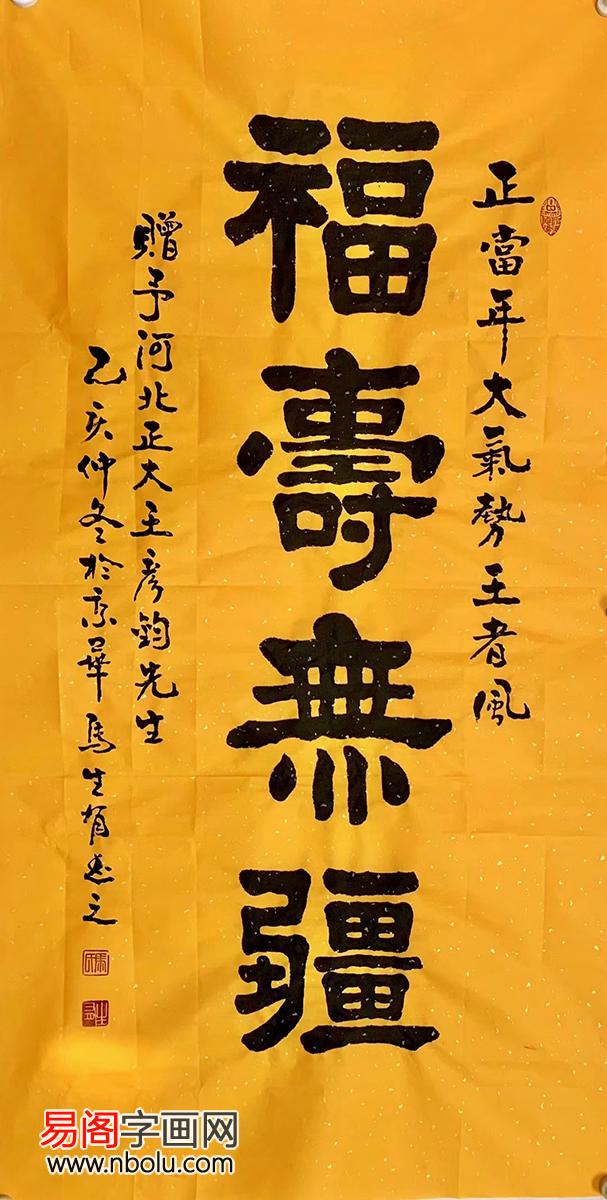 正當年大氣勢王者風
福壽無疆
贈予河北正大王彥鈞先生
乙亥仲冬於京華馬生有書之
易阁字画网
www.nbolu.com